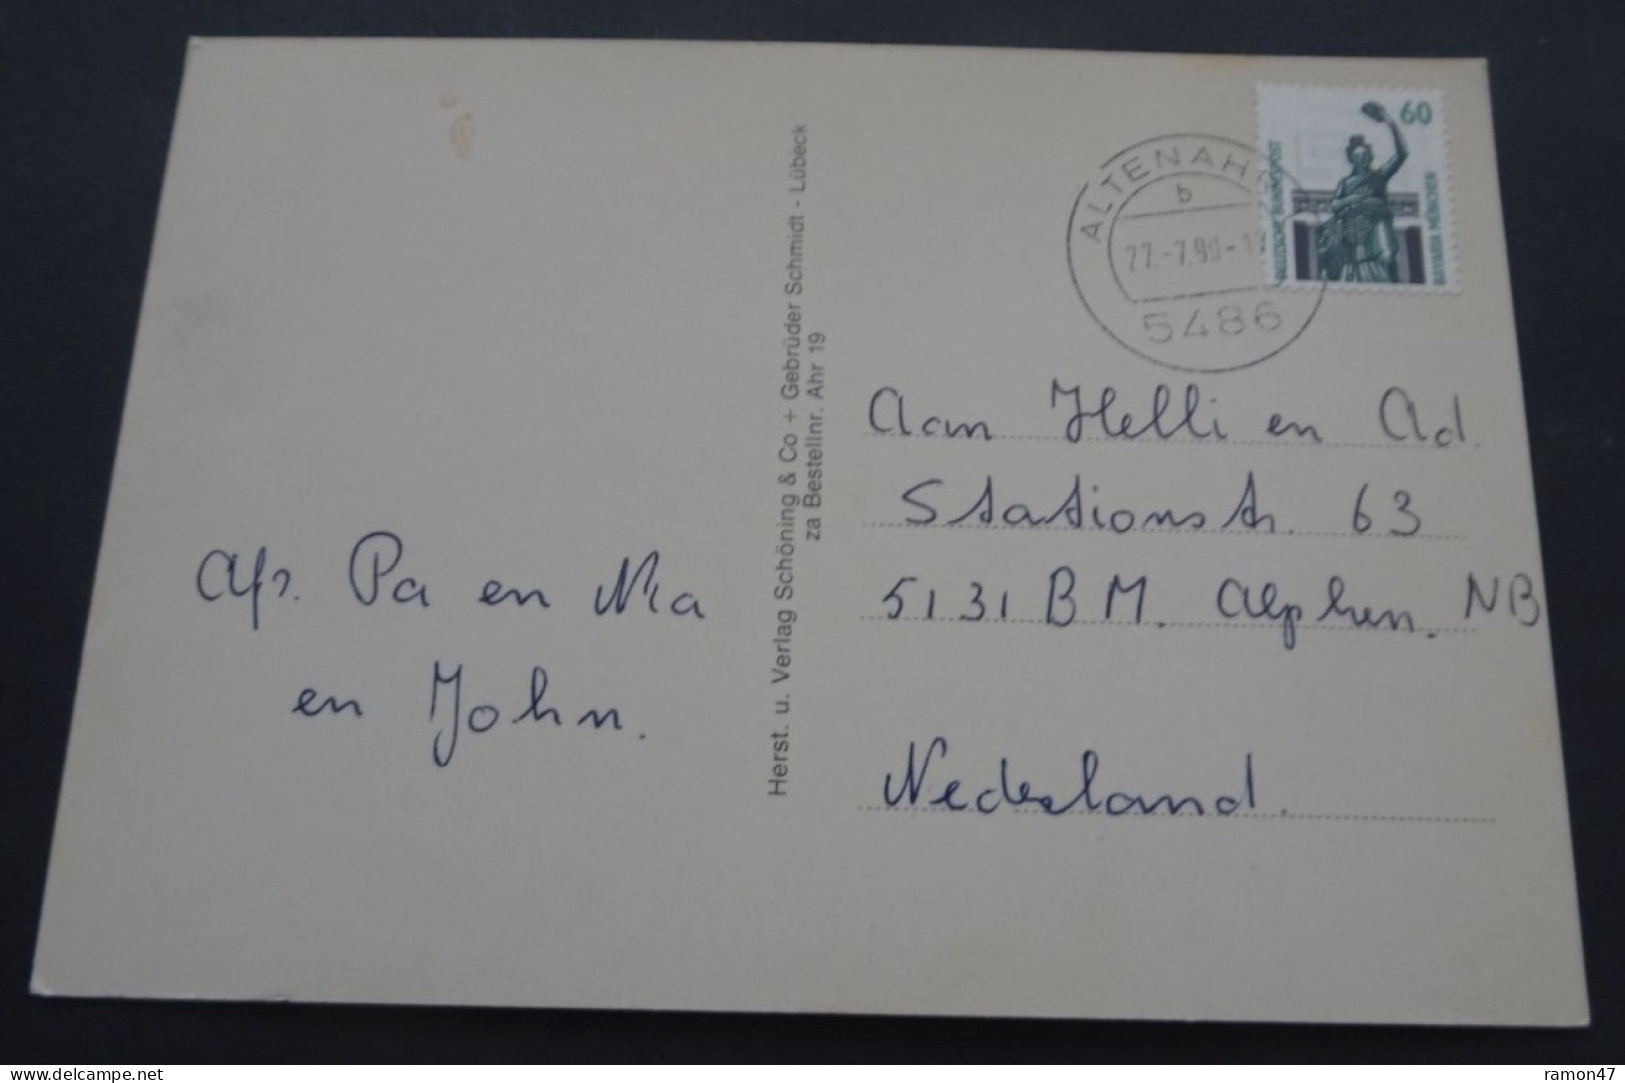 Afz. Pa en Ma
en John.
Herst. u. Verlag Schöning & Co + Gebrüder Schmidt - Lübeck
za Bestellnr. Ahr 19
ALTENAHR
b
27.-7.90-1
5486
60
DEUTSCHE BUNDESPOST
BAVARIA MÜNCHEN
Aan Helli en Ad.
Stationstr. 63
5131 BM. Alphen. NB
Nederland.
www.delcampe.net
ramon47